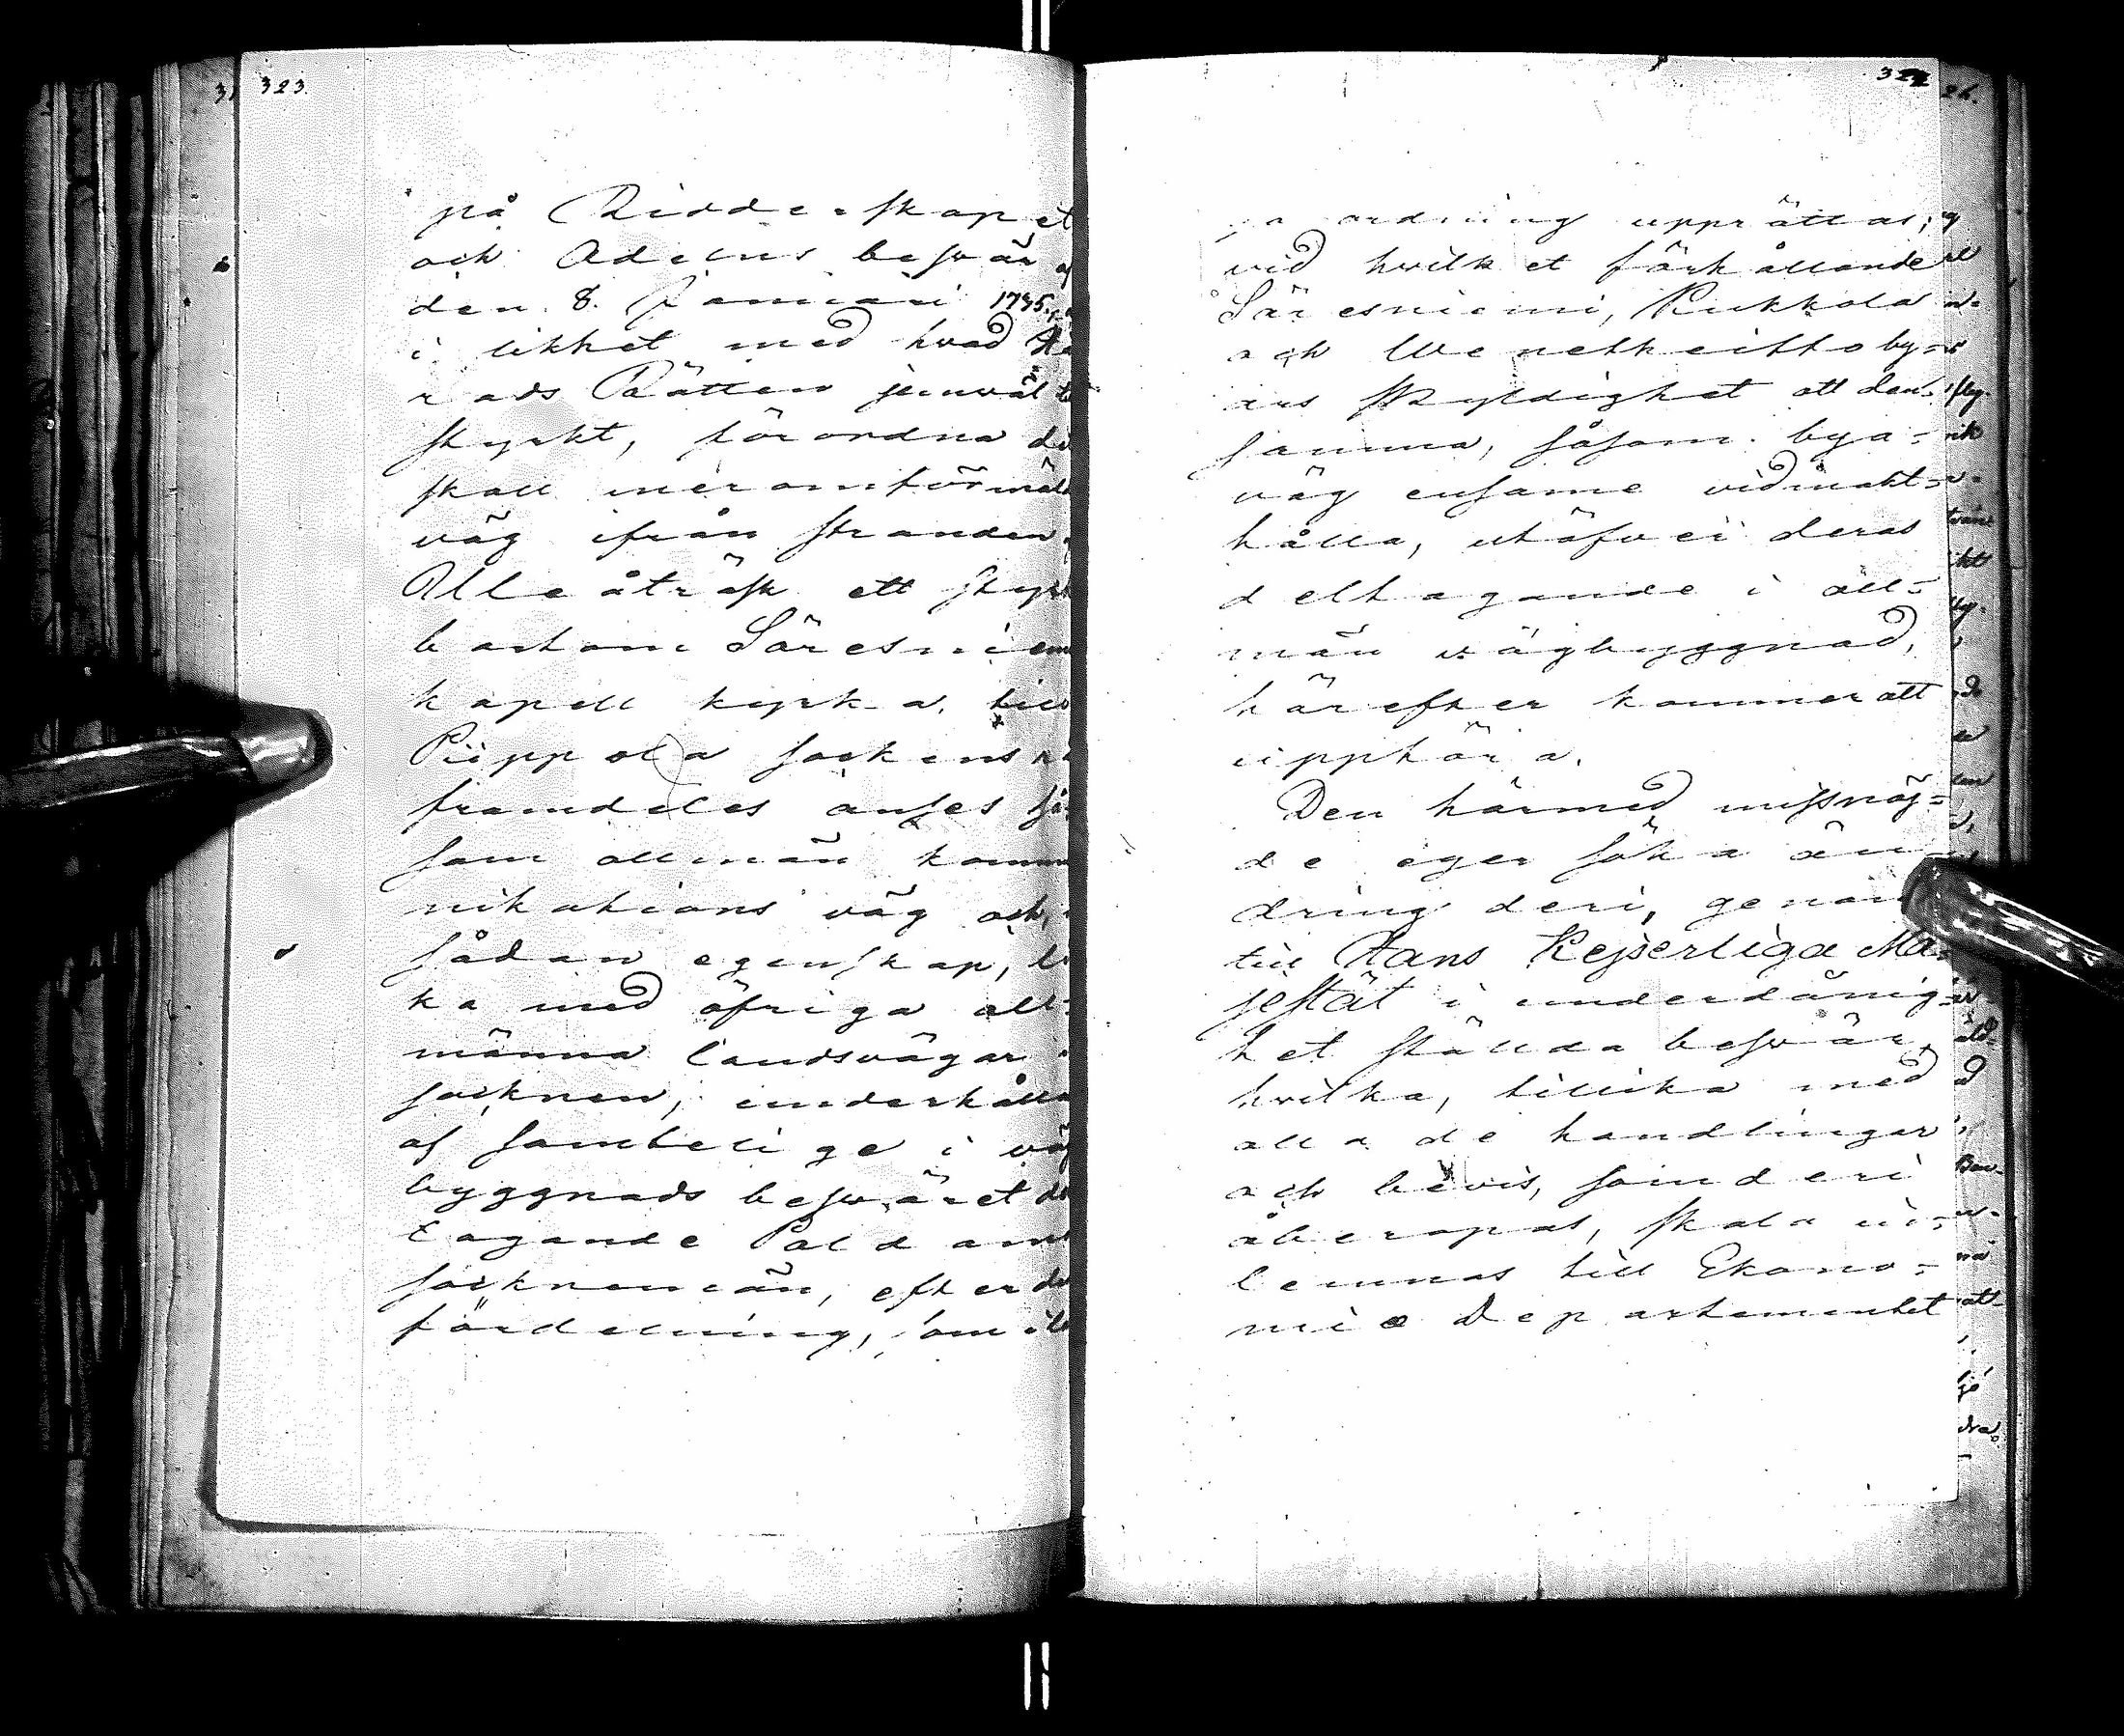 323.
på Ridderskapet
och Adelns besvär af
den 8. Januari 1735,
i likhet med hvad Hä
rads Rätten jemväl til
styrkt, förordna det
skall meromförmäld
väg ifrån stranden
Ulleåträsk ett stycke
bortom Säresniemi
kapell kyrka, till
Piippola sockens
framdeles anses så
som allmän kommu
nikations väg och, i
sådan egenskap, li
ka med öfriga all-
männa landsvägar i
socknen, underhållas
af samtelige i väg
byggnads besväret del
tagande Paldamo
socknemän, efter den
fördelning, som i la
324
ga ordning upprättas;
vid hvilket förhållande
Säresniemi, Kukkola
och Wenetheitto by-
ars skyldighet att den-
samma, såsom bya-
väg ensame vidmakt-
hålla, utöfver deras
deltagande i all-
män vägbyggnad,
härefter kommer att
upphöra.
Den härmed missnöj-
de eger söka än-
dring deri, genom
till Hans Kejserliga Ma-
jestät i underdånig-
het ställda besvär,
hvilka, tillika med
alla de handlingar
och bevis, som deri
åberopas, skola in-
lemnas till Ekono-
mie Departementet